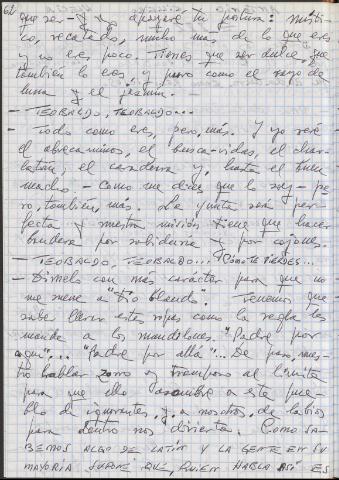 62
que ser - y yo apoyaré tu postura: místi-
co, recatado, mucho más de lo que eres
y no eres poco. Tienes que ser dulce, que
también lo eres, y puro como el rayo de
luna y el jazmín. -
- TEOBALDO, TEOBALDO...
- Todo como eres, pero, más. Y yo seré
el abrecaminos, el buscavidas, el char-
latán, el calavera y, hasta el tuno
macho. - Como me dices que lo soy - pe-
ro, también, más. La yunta será per-
fecta y nuestra misión tiene que hacer
bandera por sabiduría y por cojones.
- TEOBALDO, TEOBALDO... ¡Cómo te pierdes...
- Dímelo con más carácter para que no
me suene a "tío blando". Tenemos que
saber llevar estas ropas como la regla les
manda a los mandilones. "Padre por
aquí"... "Padre por allá"... De paso, nues-
tro hablar zorro y tramposo al límite
para que ello asombre a este pue-
blo de ignorantes, y, a nosotros, de labios
para dentro nos divierta. Como SA-
BEMOS ALGO DE LATÍN Y LA GENTE EN SU
MAYORÍA SUPONE QUE, QUIEN HABLA ASÍ ES